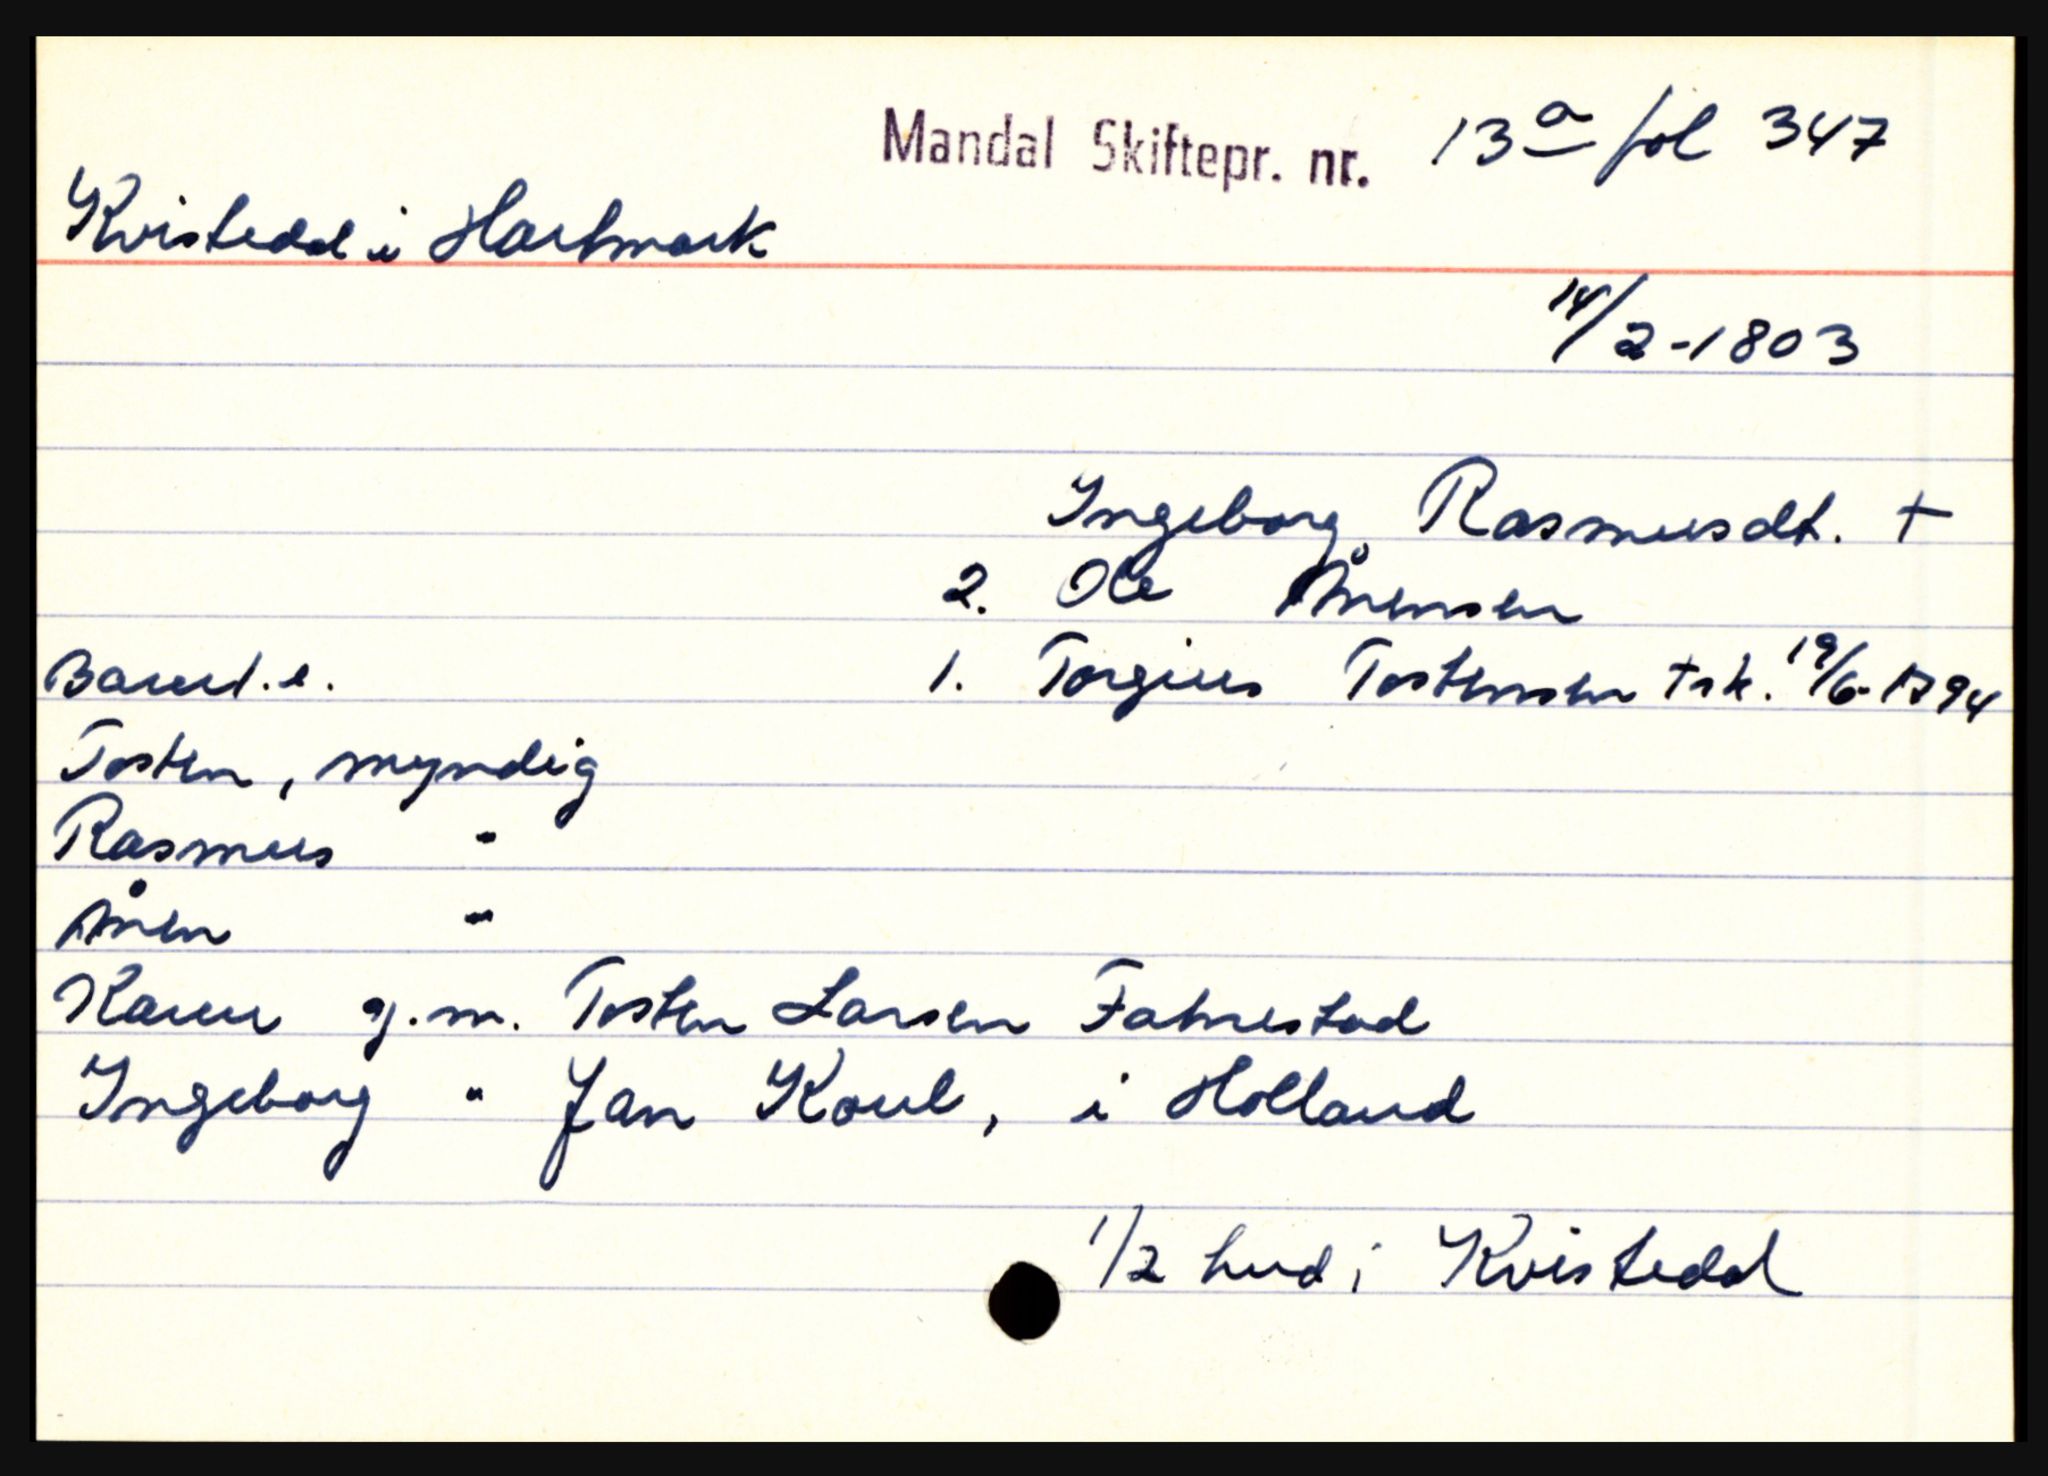 Mandal Skiftepr. nr. 13a fol 347
Kvistedal i Hartmark
14/2-1803
Ingeborg Rasmusdt. †
2. Ole Ånensen
Barn 1. e. 1. Torgius Tostensen † sk. 19/6-1794
Tosten, myndig
Rasmus "
Ånen "
Karen g.m. Tosten Larsen Fahrestad
Ingeborg " Jan Koul, i Holland
1/2 hud i Kvistedal